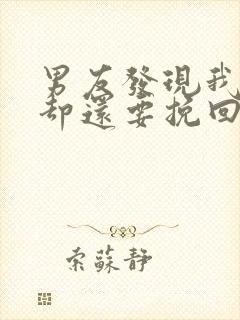 男友發現我
却還要挽回
索蘇靜